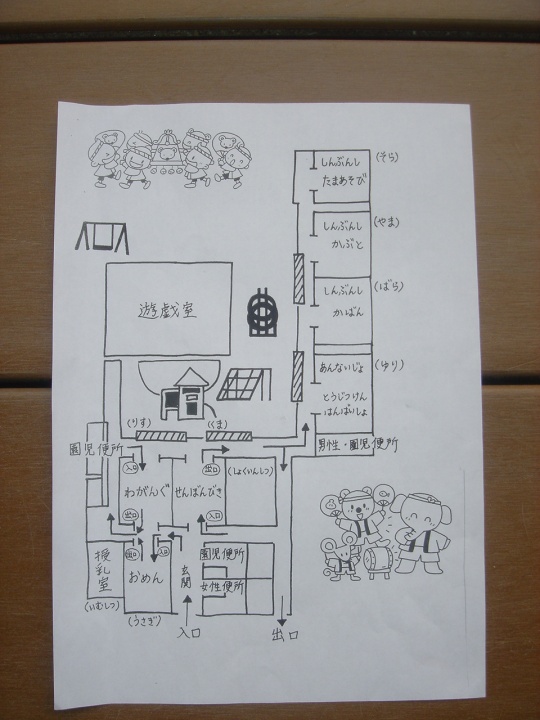 しんぶんし
たまあそび
(そら)
しんぶんし
かぶと
(やま)
しんぶんし
かばん
(ばら)
あんないじょ
とうじつけん
はんばいしょ
(ゆり)
遊戯室
(りす)
(くま)
園児便所
男性・園児便所
入口
出口
(しょくいんしつ)
わがんぐ
せんぼんびき
出口
入口
出口
入口
授乳室
おめん
玄関
園児便所
女性便所
(いむしつ)
(うさぎ)
入口
出口